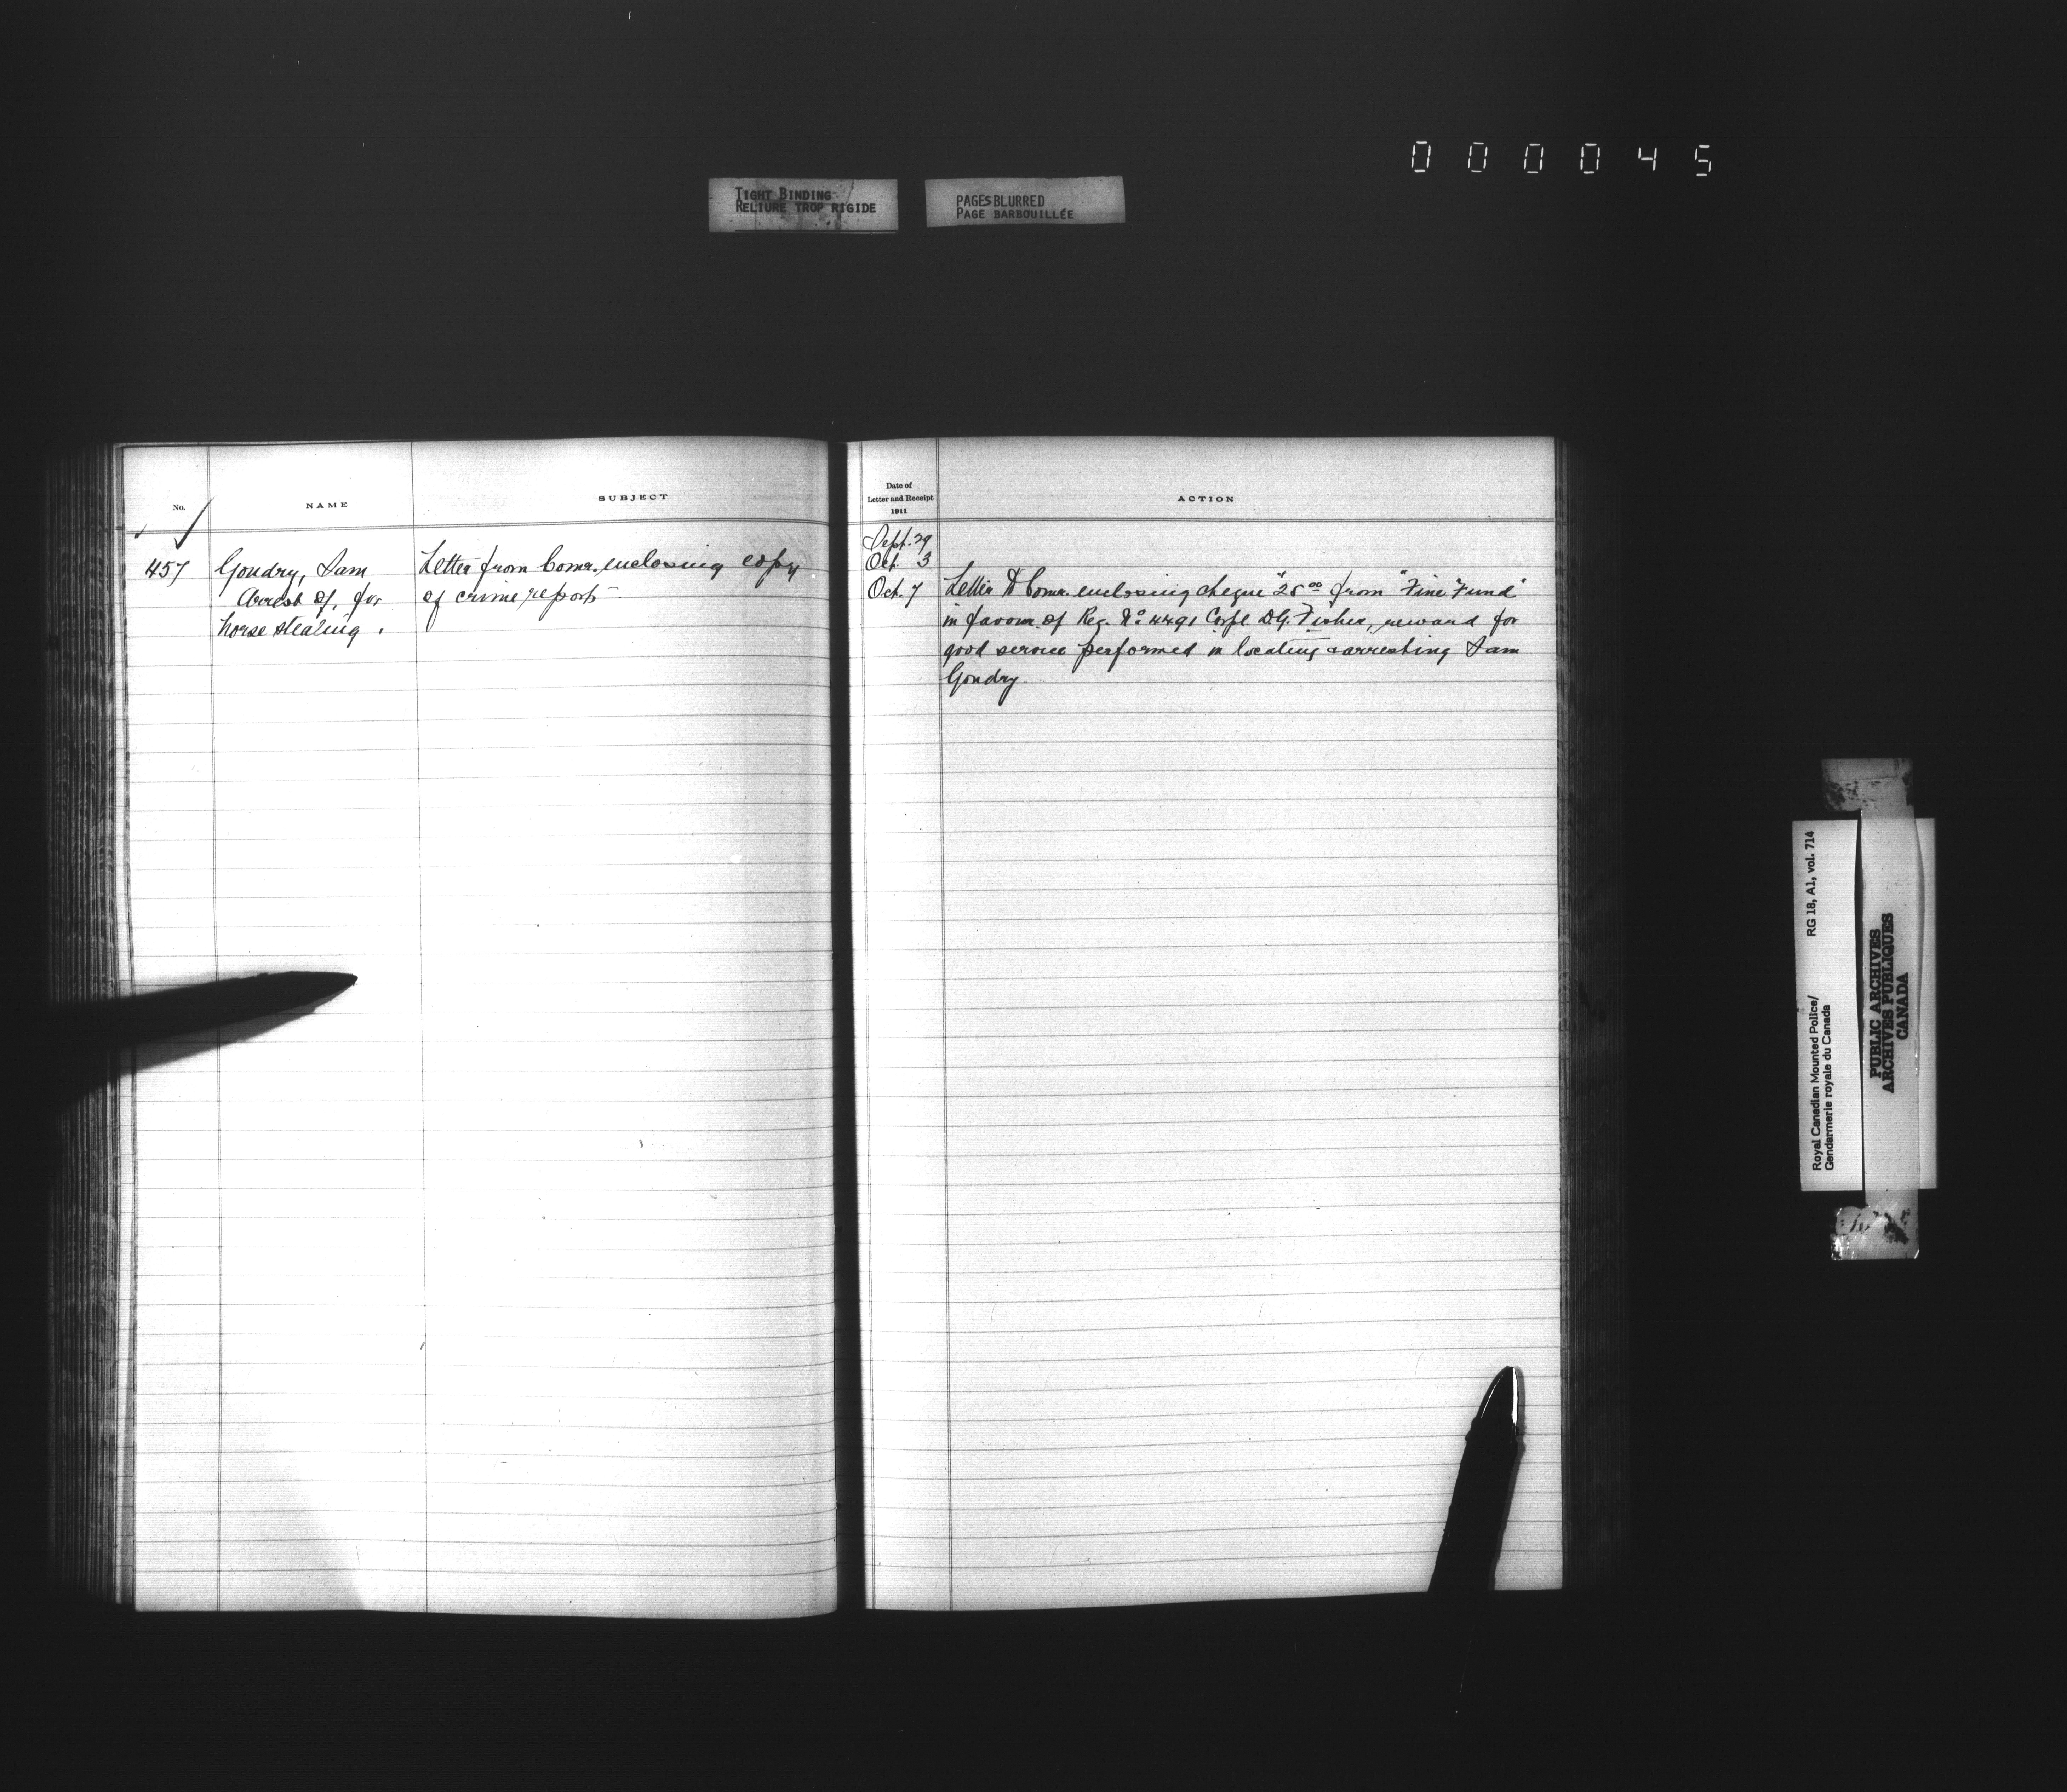 000045
TIGHT BINDING
RELIURE TROP RIGIDE
PAGES BLURRED
PAGE BARBOUILLÉE
No.
NAME
SUBJECT
457
Goudry, Sam
Arrest of, for
horse stealing.
Letter from Comr. enclosing copy
of crime report
Date of
Letter and Receipt
1911
ACTION
Sept. 29
Oct. 3
Oct. 7
Letter to Comr. enclosing cheque $25.00 from "Fine Fund"
in favour of Reg. No. 4491 Corpl. D.G. Fisher, reward for
good service performed in locating & arresting Sam
Goudry.
Royal Canadian Mounted Police/
Gendarmerie royale du Canada
RG 18, A1, vol. 714
PUBLIC ARCHIVES
ARCHIVES PUBLIQUES
CANADA